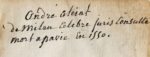 André Alciat
de Milan celebre juris consulte
mort a pavie en 1550.